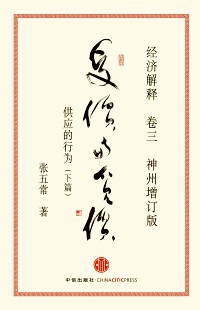 经济解释 卷三 神州增订版
受價与覓價
供应的行为（下篇）
张五常 著
中信出版社·CHINACITICPRESS